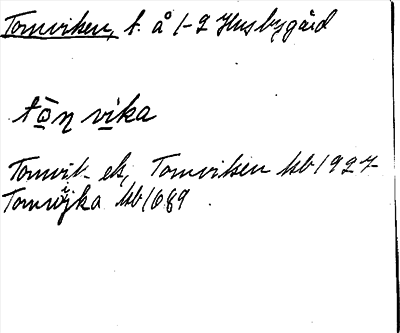 Tomviken, t. å 1-2 Husbygård
tò̱n vi̱ka
Tomvik- ek, Tomviken kb 1927
Tomwijka kb 1689